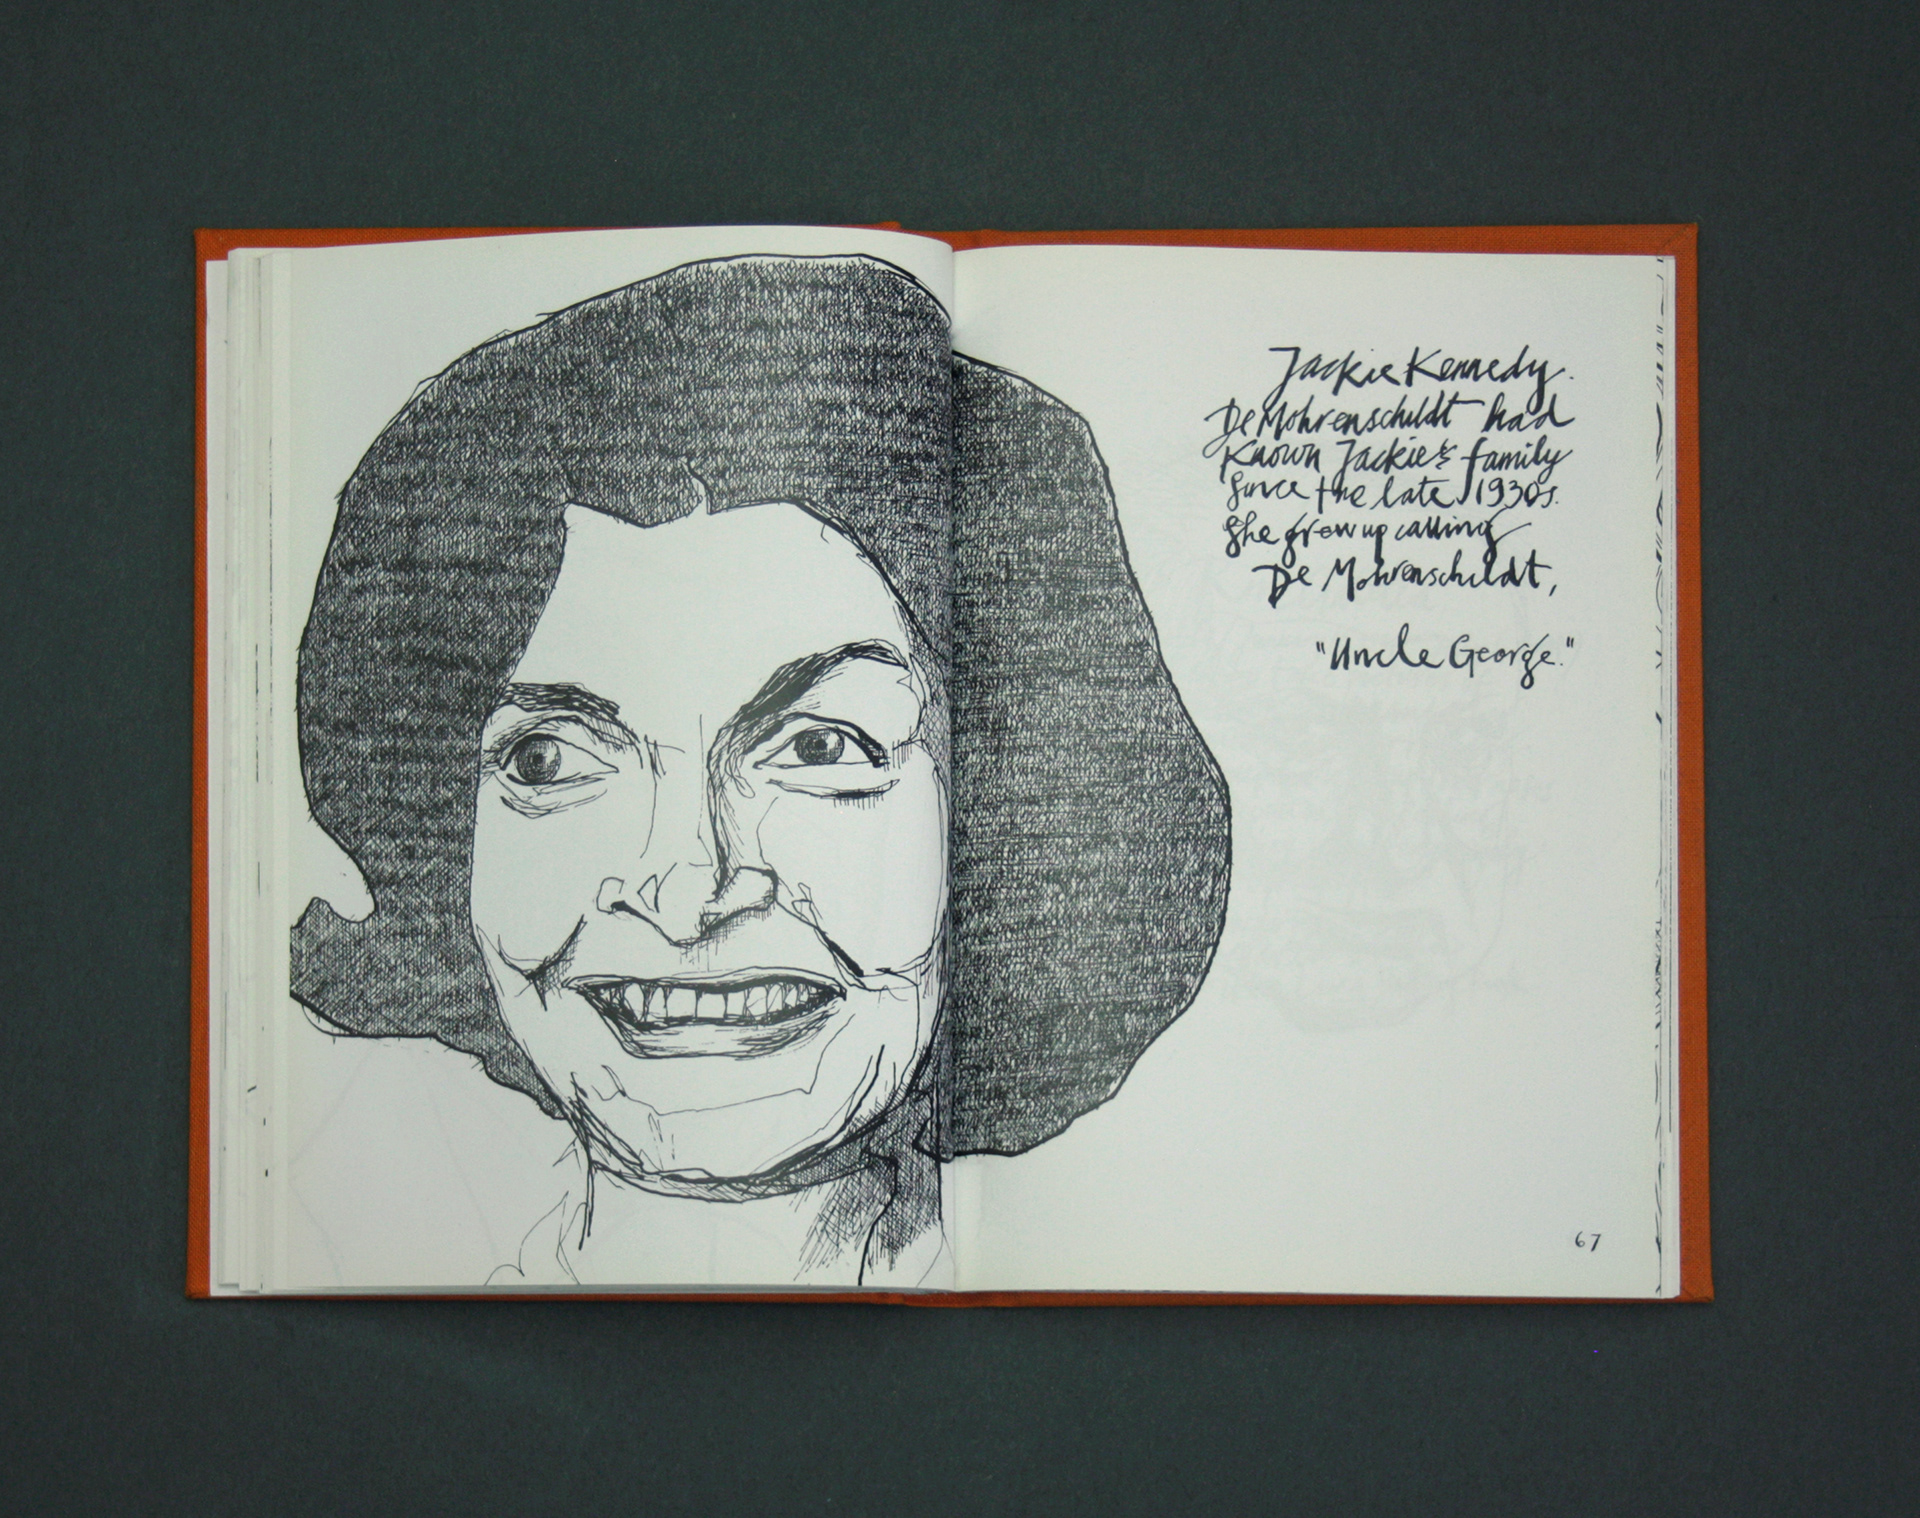 Jackie Kennedy.
De Mohrenschildt had
known Jackie's family
since the late 1930s.
She grew up calling
De Mohrenschildt,
"Uncle George."
67